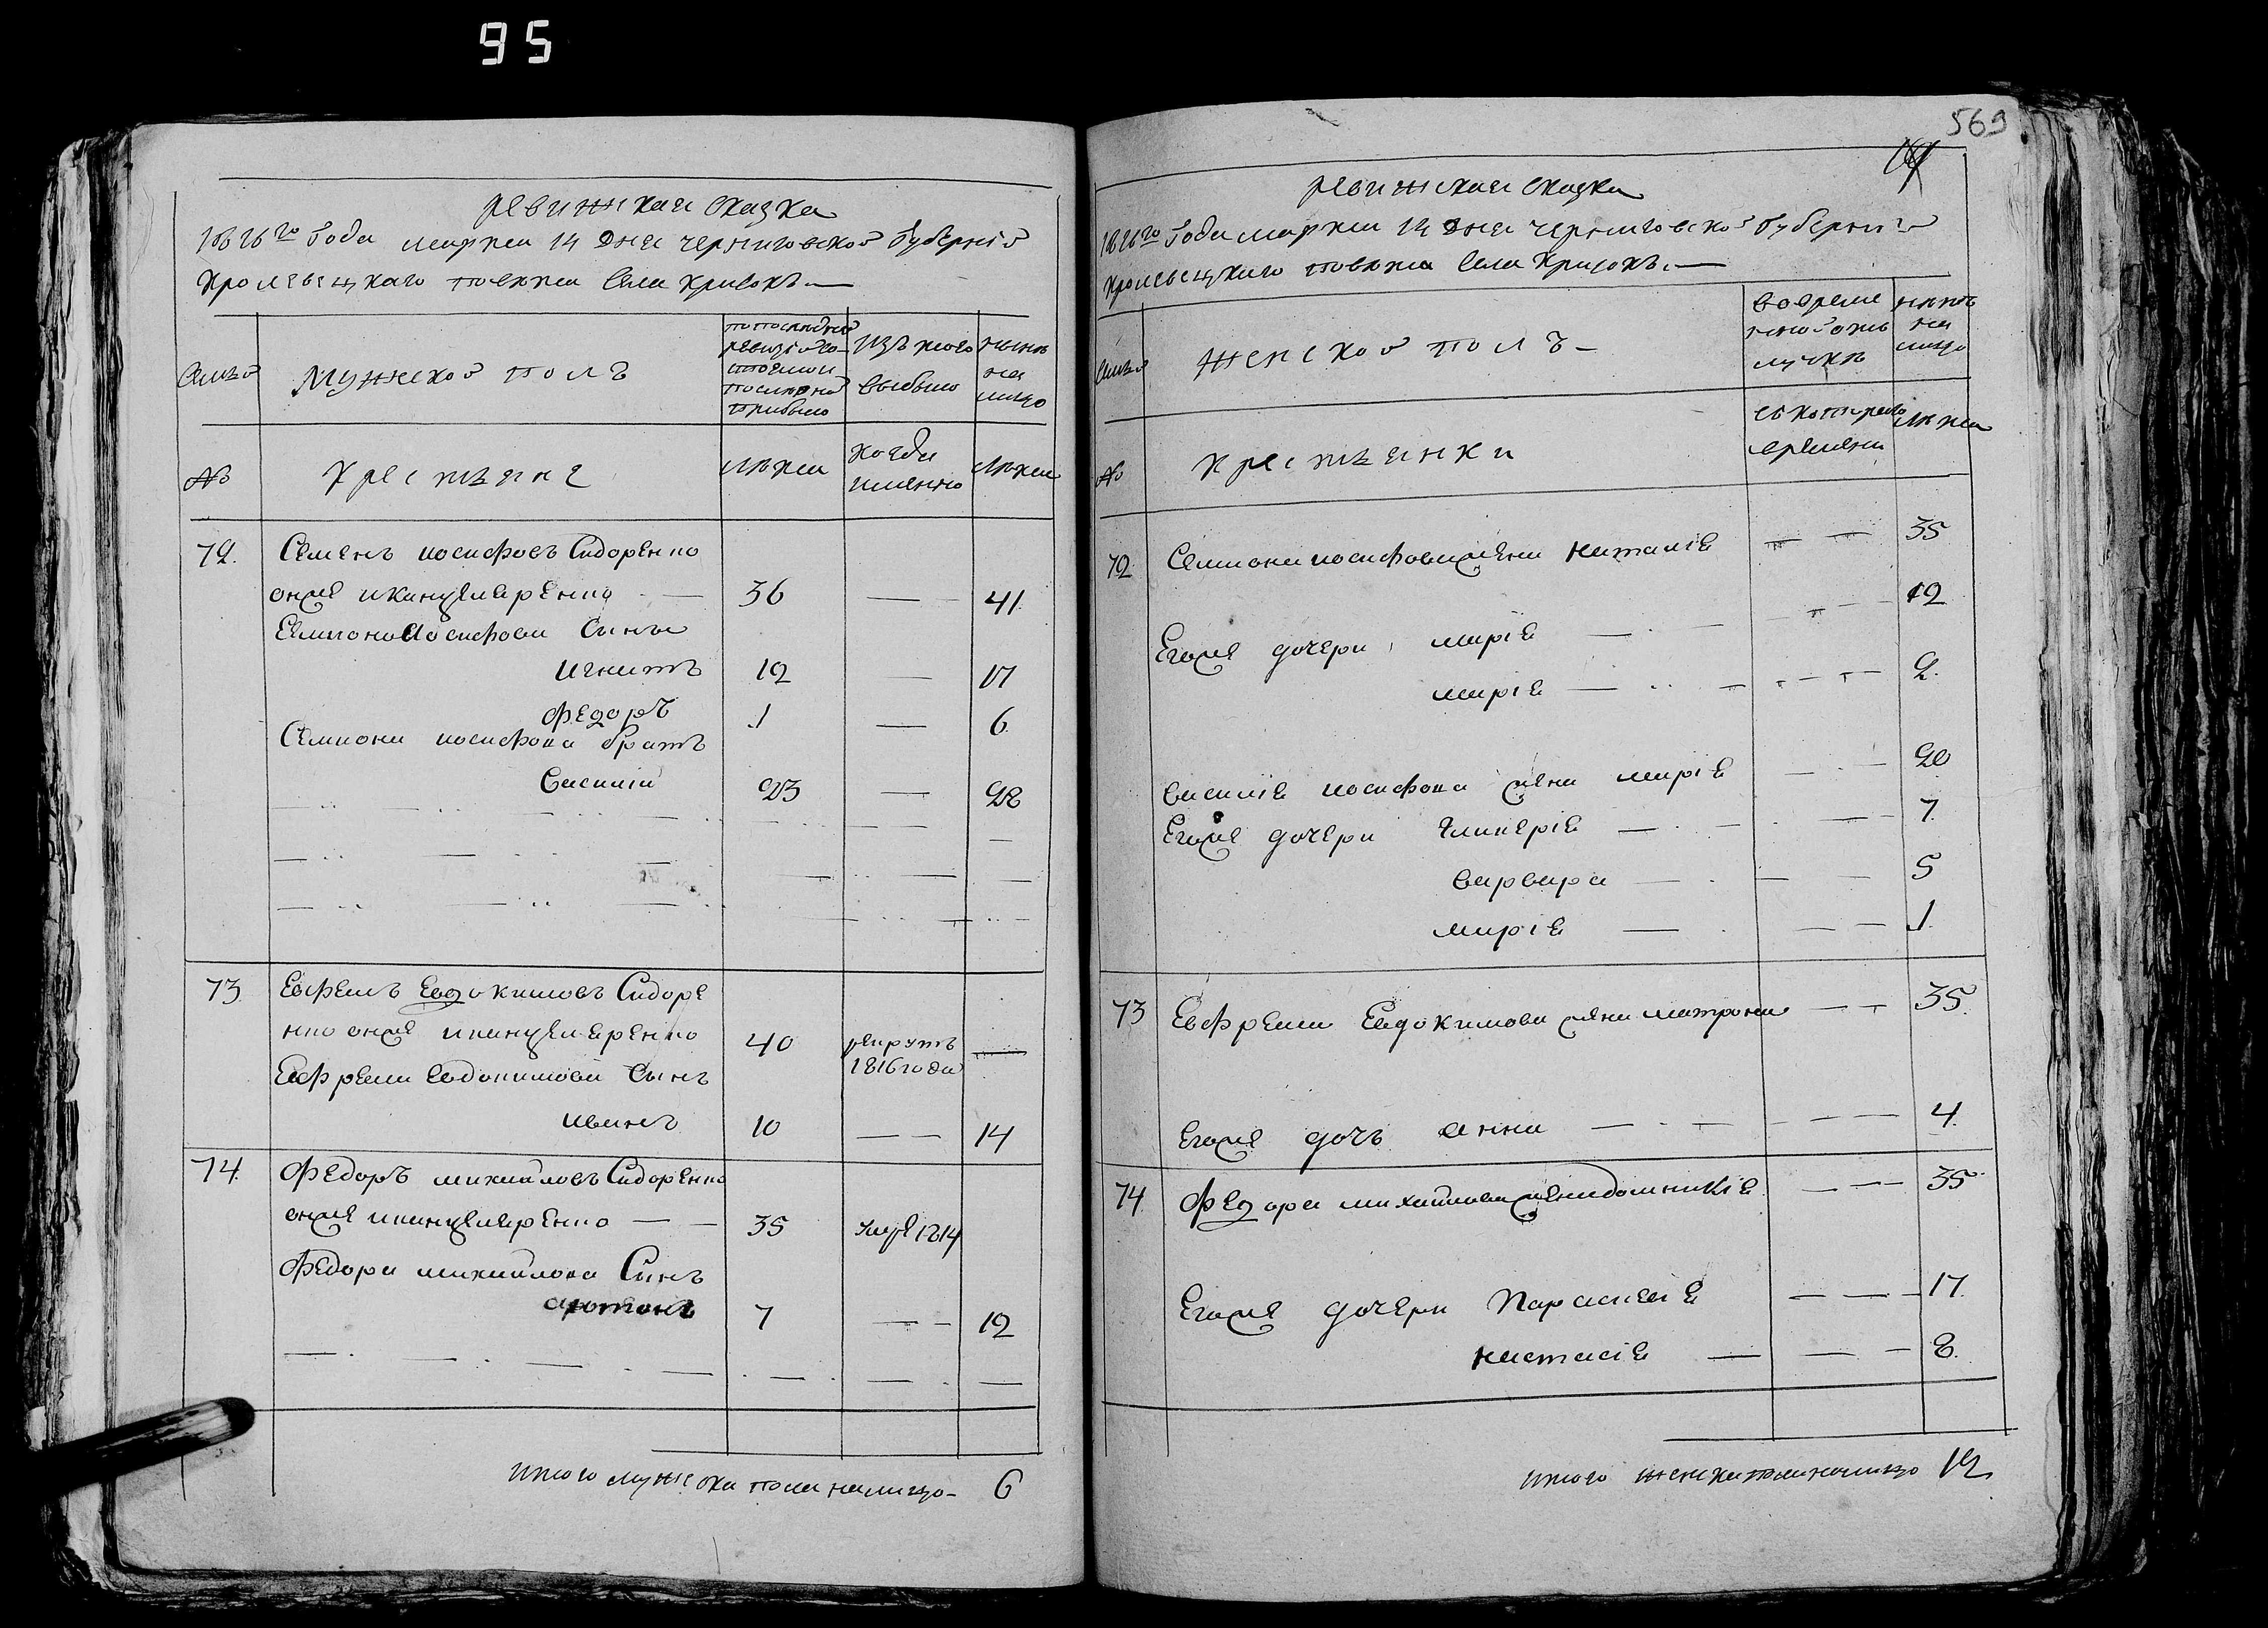 95
ревижская сказка
1816го года марта 14 дня черниговской губерний
кролевецкаго повѣта села
Семьи
мужеской полъ
попослѣдней
ревизіи со-
стояло и
послѣ оной
прибыло
изъ того
выбыло
нынѣ
на
лицо
№
крестьяне
лѣта
когда
именно
лѣта
72. Семенъ иосифовъ Сидоренко
онже иканцеляренко — 36 — 41
Семиона иосифова Сины
игнатъ 12 — 17
федоръ 1 — 6
Семиона иосифова братъ
василій 23 — 28
73 Евфремъ Евдокимовъ Сидоре
нко онже иканцеляренко 40 рекрутъ —
1816 года
Ефрема Евдокимова Сынъ
иванъ 10 — — 14
74. Федоръ михайловъ Сидоренко
онже иканцеляренко — — 35 умре 1814
Федора михайлова Синъ
7 — — 12
итого мужеска пола налицо — 6
569
ревижская сказка
1816го года марта 14 дня черниговской губерний
кролевецкаго повѣта села
Семьи
женской полъ —
вовреме
нной отъ
лучкѣ
нынѣ
на
лицо
№
крестьянки
съ котораго
времени
лѣта
72 Семиона иосифова жена наталія — — 35
Егоже дочери марія — 12
марія — 2.
василія иосифова жена марія — 20
Егоже дочери гликерія — 7.
варвара — 5
марія — 1.
73 Евфрема Евдокимова жена матрона — — 35.
Егоже дочъ анна — 4.
74 Федора михайлова жена домникія — — 35
Егоже дочери Параскевія — — 17.
настасія — — 8.
итого женска пола налицо 12